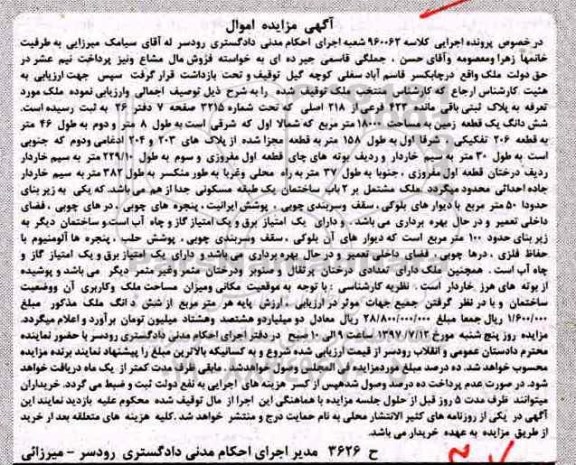 آگهی مزایده اموال
در خصوص پرونده اجرایی کلاسه ۹۶۰۰۶۲ شعبه اجرای احکام مدنی دادگستری رودسر له آقای سیامک میرزایی به طرفیت
خانمها زهرا ومعصومه وآقای حسن ، جملگی قاسمی جیر ده ای به خواسته فروش مال مشاع ونیز پرداخت نیم عشر در
حق دولت ملک واقع درچابکسر قاسم آباد سفلی کوچه گیل توقیف و تحت بازداشت قرار گرفت سپس جهت ارزیابی به
هئیت کارشناس ارجاع که کارشناس منتخب ملک توقیف شده را به شرح ذیل توصیف اجمالی وارزیابی نموده ملک مورد
تعرفه به پلاک ثبتی باقی مانده ۴۲۳ فرعی از ۲۱۸ اصلی که تحت شماره ۳۲۱۵ صفحه ۷ دفتر ۲۶ به ثبت رسیده است.
شش دانگ یک قطعه زمین به مساحت ۱۸۰۰۰ متر مربع که شمالا اول که شرقی است به طول ۸ متر و دوم به طول ۴۶ متر
به قطعه ۲۰۶ تفکیکی ، شرقا اول به طول ۱۵۸ متر به قطعه مجزا شده از پلاک های ۲۰۳ و ۲۰۴ ادغامی ودوم که جنوبی
است به طول ۳۰ متر به سیم خاردار و ردیف بوته های چای قطعه اول مفروزی و سوم به طول ۲۲۹/۱۰ متر به سیم خاردار
ردیف درختان قطعه اول مفروزی ، جنوبا به طول ۳۷ متر به راه محلی وغربا به طور متکسر به طول ۳۸۲ متر به سیم خاردار
جاده احداثی محدود میگردد .ملک مشتمل بر ۲ باب ساختمان یک طبقه مسکونی جدا از هم می باشد که یکی به زیر بنای
حدودا ۵۰ متر مربع با دیوار های بلوکی ، سقف وسربندی چوبی ، پوشش ایرانیت ، پنجره های چوبی ، در های چوبی ، فضای
داخلی تعمیر و در حال بهره برداری می باشد . و دارای یک امتیاز برق و یک امتیاز گاز و چاه آب است.و ساختمان دیگر به
زیر بنای حدود ۱۰۰ متر مربع است که دیوار های آن بلوکی ، سقف وسربندی چوبی ، پوشش حلب ، پنجره ها آلومنیوم با
حفاظ فلزی ، درها چوبی ، فضای داخلی تعمیر و در حال بهره برداری می باشد و دارای یک امتیاز برق و یک امتیاز گاز و
چاه آب است . همچنین ملک دارای تعدادی درختان پرتقال ، صنوبر ودرختان مثمر وغیر مثمر دیگر می باشد و پوشیده
از بوته های هرز خاردار است . نظریه کارشناسی : با توجه به موقعیت مکانی ومیزان مساحت ملک وکاربری آن ووضعیت
ساختمان و با در نظر گرفتن جمیع جهات موثر در ارزیابی ، ارزش پایه هر متر مربع از شش دانگ ملک مذکور مبلغ
۱/۶۰۰/۰۰۰ ریال جمعا مبلغ ۲۸/۸۰۰/۰۰۰/۰۰۰ ریال معادل دو میلیاردو هشتصد وهشتاد میلیون تومان برآورد و اعلام میگردد.
مزایده روز پنج شنبه مورخ ۱۳۹۷/۷/۱۲ ساعت ۹ الی ۱۰ صبح در دفتر اجرای احکام مدنی دادگستری رودسر با حضور نماینده
محترم دادستان عمومی و انقلاب رودسر از قیمت ارزیابی شده شروع و به کسانیکه بالاترین مبلغ را پیشنهاد نمایند برنده مزایده
محسوب خواهد شد. ده درصد مبلغ موردمزایده فی المجلس وصول خواهدشد . مابقی ظرف مدت کمتر از یک ماه دریافت خواهد
شود. در صورت عدم پرداخت ده درصد وصول شدهپس از کسر هزینه های اجرایی به نفع دولت ثبت و ضبط می گردد. خریداران
میتوانند ظرف مدت ۵ روز قبل از حلول جلسه مزایده با هماهنگی این اجرا از مال توقیف شده محکوم علیه بازدید نمایند این
آگهی در یکی از روزنامه های کثیر الانتشار محلی به نام حمایت درج و منتشر خواهد شد .کلیه هزینه های متعلقه بعد از خرید
از طریق مزایده به عهده خریدار می باشد.
ح ۳۶۲۶ مدیر اجرای احکام مدنی دادگستری رودسر – میرزائی